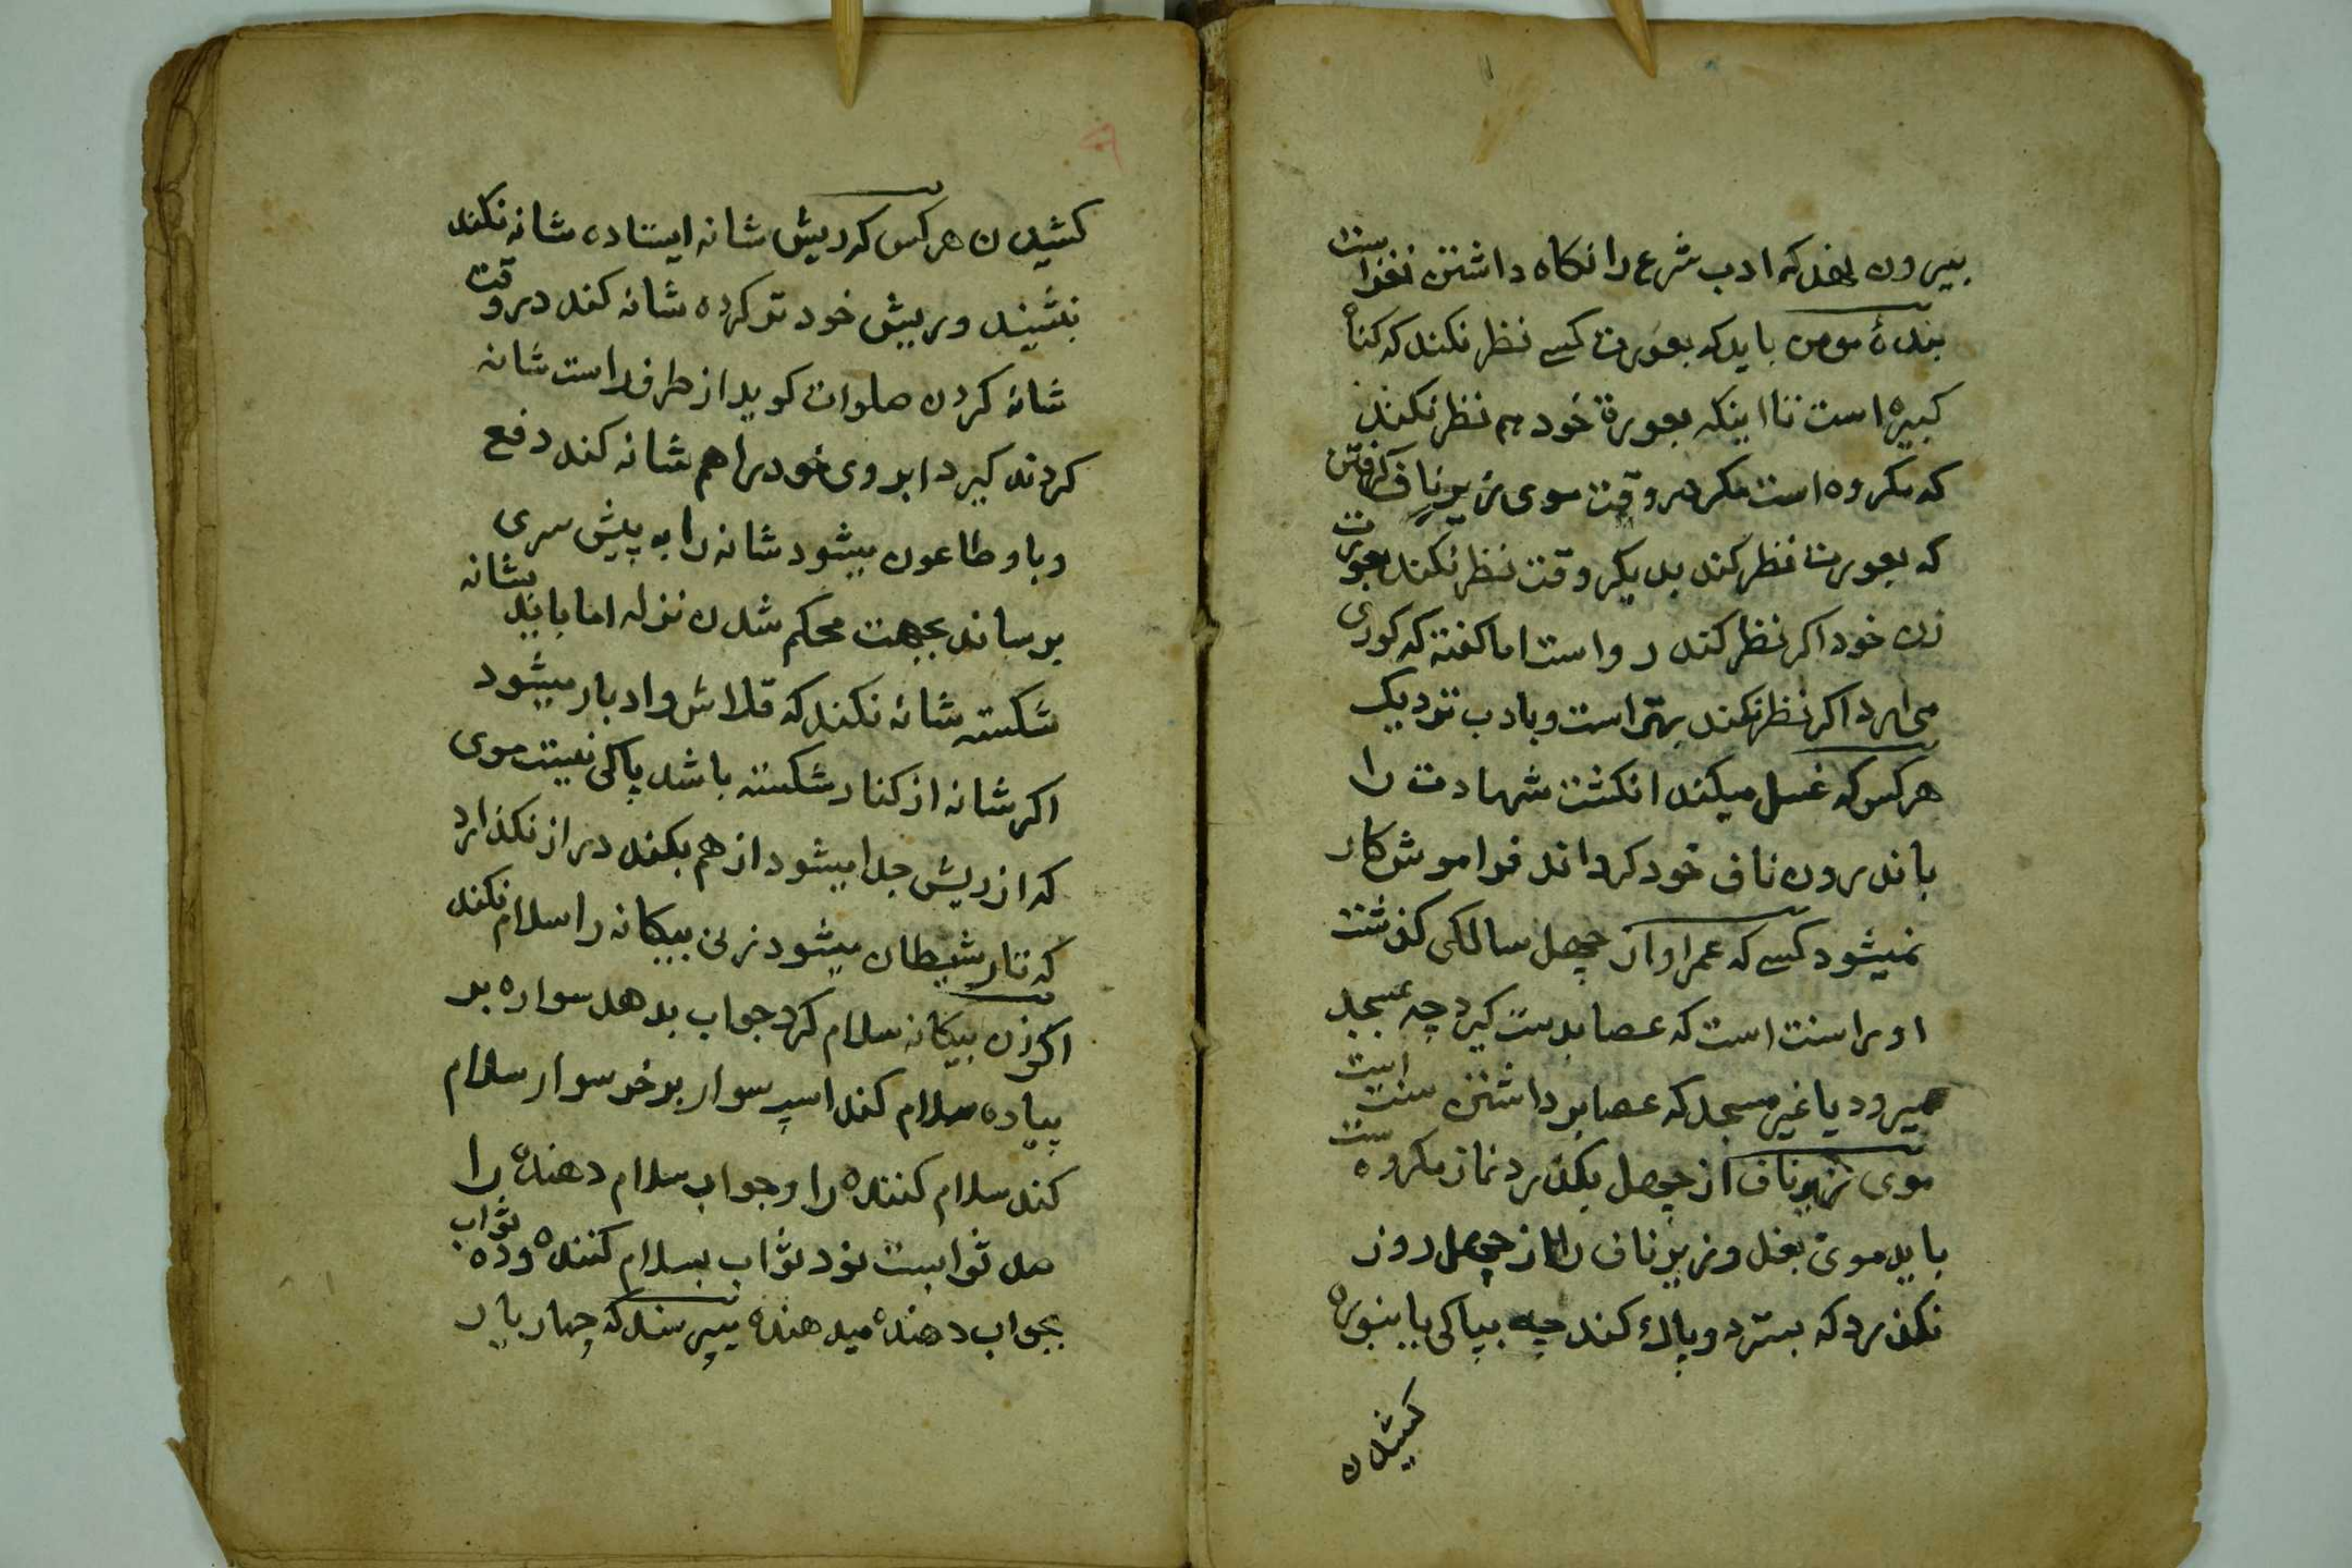 بیرون نهد که ادب شرع را نکاه داشتن نغزاست
بندهٔ مومن باید که بعورت کسے نظر نکند که کناه
کبیره است تا اینکه بعورة خود هم نظر نکند
که مکروه است مکر در وقت موی زیر ناف کرفتن
که بعورت نظر کند بدیکر وقت نظر نکند بعورت
زن خود اکر نظر کند رواست اما کفته که کوری
می ارد اکر نظر نکند بهتر است و بادب نزدیک
هر کس که غسل میکند انکشت شهادت را
باندرون ناف خود کرداند فراموش کار
نمیشود کسے که عمر او از چهل سالکی کذشت
او را سنت است که عصا بدست کیرد چه بمسجد
میرود یا غیر مسجد که عصا برداشتن سنت است
موی زیر ناف از چهل بکذرد نماز مکروه ست
باید موی بغل و زیر ناف را از چهل روز
نکذرد که بسترد و پاك کند چه بپاکی یا بنوره
کشیدن
کشیدن هر کس که ریش شانه ایستاده شانه نکند
بنشیند و ریش خود تر کرده شانه کند در وقت
شانه کردن صلوات کوید از طرف راست شانه
کردند کیرد ابروی خود را هم شانه کند دفع
وبا و طاعون میشود شانه را به پیش سری
برساند بجهت محکم شدن نزله اما باید بشانه
شکسته شانه نکند که قلاش و ادبار میشود
اکر شانه از کنار شکسته باشد پاکی نیست موی
که از ریش جدا میشود از هم بکند دراز نکذارد
که تار شیطان میشود زنی بیکانه را سلام نکند
اکر زن بیکانه سلام کرد جواب بدهد سواره بر
پیاده سلام کند اسپ سوار بر خر سوار سلام
کند سلام کننده را و جواب سلام دهنده را
صد ثوابست نود ثواب بسلام کننده و ده ثواب
بجواب دهنده میدهند میپرسند که چهار یار